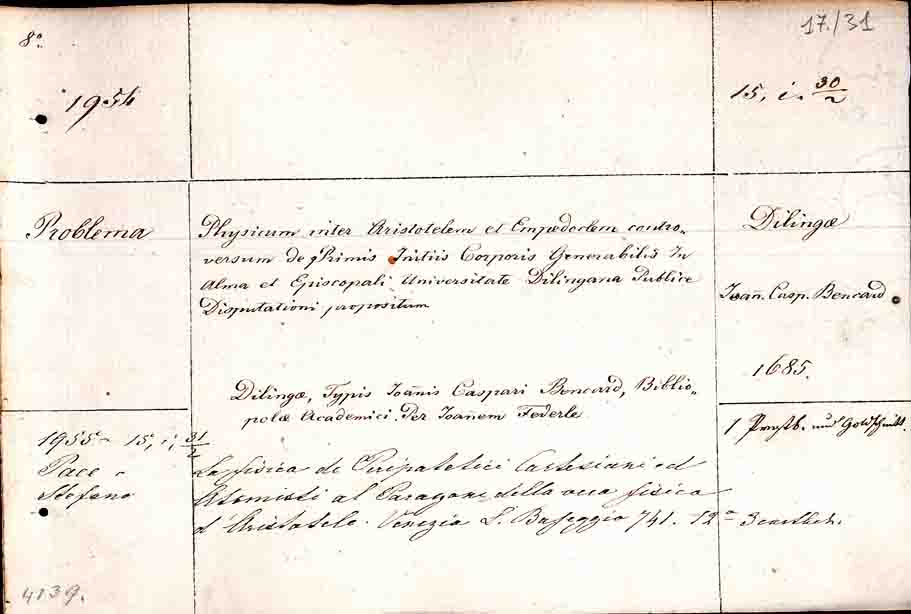 8°
17./31
1954
15, i. 30/2
Problema
Physicum inter Aristotelem et Empedoclem contro-
versum de Primis Initiis Corporis Generabilis In
Alma et Episcopali Universitate Dilingana Publice
Disputationi propositum
Dilingæ
Joañ. Casp. Bencard
1685.
Dilingæ, Typis Ioañis Caspari Bencard, Biblio-
polæ Academici. Per Ioanem Federle
1 und Goldschnitt.
1955 - 15, i, 31/2
Pace
Stefano
La fisica de Peripatetici Cartesiani ed
Atomisti al Paragone della vera fisica
d'Aristotele. Venezia S. Baseggio 741. 12°
4139.